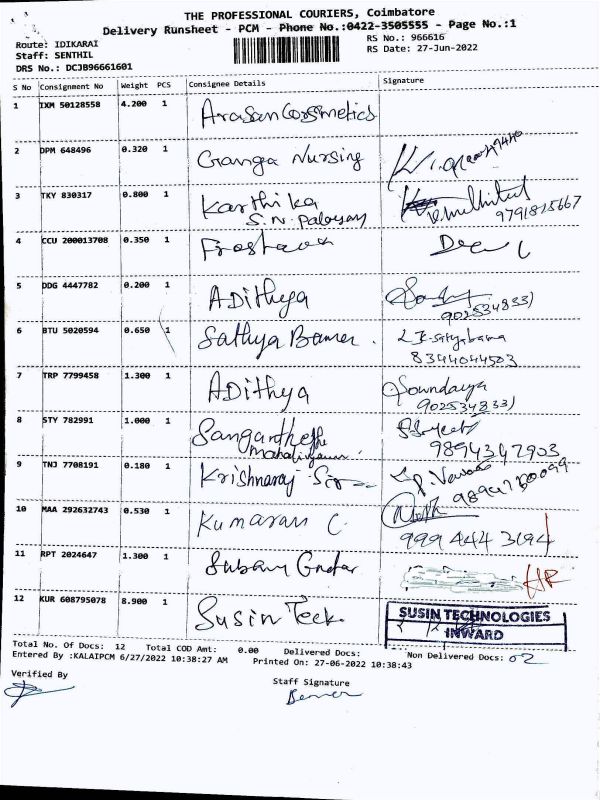 THE PROFESSIONAL COURIERS, Coimbatore
Delivery Runsheet - PCM - Phone No.:0422-3505555 - Page No.:1
Route: IDIKARAI
RS No.: 966616
Staff: SENTHIL
RS Date: 27-Jun-2022
DRS No.: DCJB96661601
S No Consignment No Weight PCS Consignee Details Signature
1 IXM 50128558 4.200 1 Arasan Cossmetics
2 DPM 648496 0.320 1 Ganga Nursing
3 TKY 830317 0.800 1 Karthika
S.N. Palayam 9791815667
4 CCU 200013708 0.350 1
5 DDG 4447782 0.200 1 ADithya
902534833)
6 BTU 5020594 0.650 1 Sathya Bamer.
8344044503
7 TRP 7799458 1.300 1 ADithya Sowndarya
902534833)
8 STY 782991 1.000 1
9894347903
9 TNJ 7708191 0.180 1 Krishnaraj Sir
10 MAA 292632743 0.530 1 Kumaran C.
999 444 3194
11 RPT 2024647 1.300 1 HR
12 KUR 608795078 8.900 1 Susin Teck.
SUSIN TECHNOLOGIES
INWARD
Total No. Of Docs: 12 Total COD Amt: 0.00 Delivered Docs: Non Delivered Docs: 02
Entered By :KALAIPCM 6/27/2022 10:38:27 AM Printed On: 27-06-2022 10:38:43
Verified By
Staff Signature